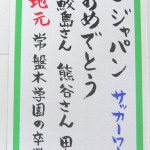 ジャパン サッカーワ
おめでとう
鮫島さん 熊谷さん 田
地元 常盤木学園の卒